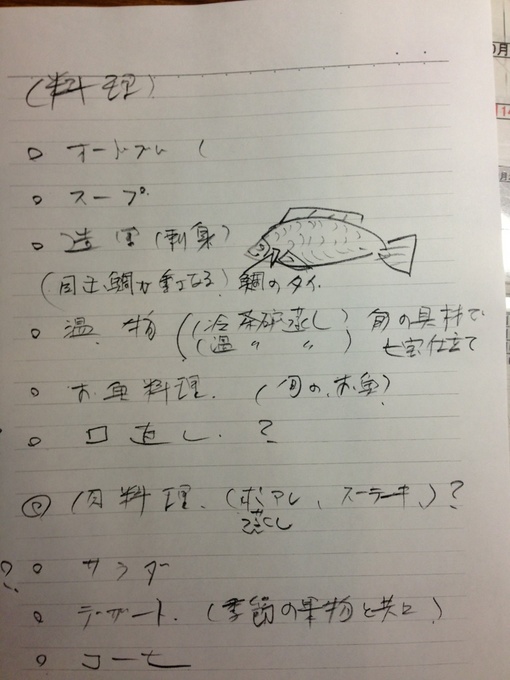 (料理)
○ オードブル (
○ スープ
○ 造里 (刺身)
鯛が重なる) 鯛のタイ
○ 温物 (冷茶碗蒸し) 旬の具材で
(温 〃 〃 ) 七宝仕立て
○ お魚料理. (旬の.お魚)
○ 口直し. ?
◎ 肉料理. (ポアレ、ステーキ、) ?
蒸し
? ○ サラダー
○ デザート. (季節の果物と共に)
○ コーヒー
0月
14